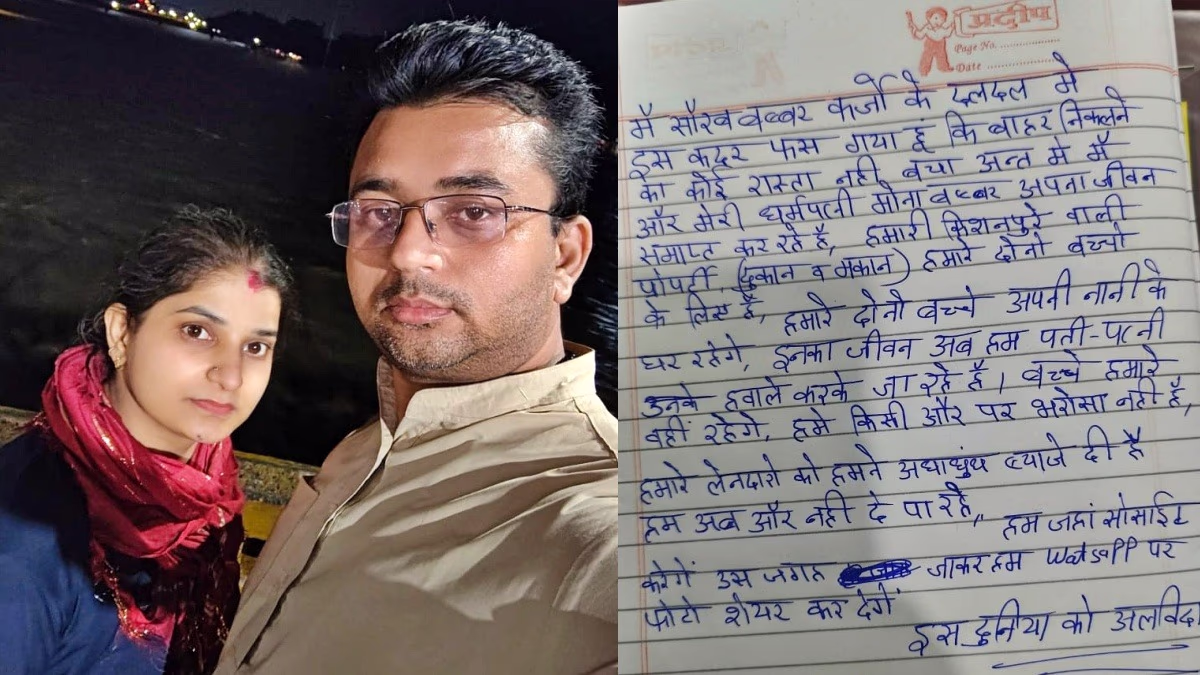 प्रदीप
Page No.
Date
मै सौरव बब्बर कर्जो के दलदल मे
इस कदर फस गया हूं कि बाहर निकलने
का कोई रास्ता नही बचा अन्त मे मैं
और मेरी धर्मपत्नी मोना बब्बर अपना जीवन
समाप्त कर रहे है, हमारी किशनपुरे वाली
पोपर्टी, (दुकान व मकान) हमारे दोनो बच्चो
के लिए है, हमारे दोनो बच्चे अपनी नानी के
घर रहेगे, इनका जीवन अब हम पती-पत्नी
उनके हवाले करके जा रहे है। बच्चे हमारे
वहीं रहेगे, हमे किसी और पर भरोसा नही है,
हमारे लेनदारो को हमने अंधाधुंध ब्याजे दी है
हम अब और नही दे पा रहे,, हम जहां सोसाईट
करेगें उस जगह जाकर हम WatsaPP पर
फोटो शेयर कर देगें
इस दुनिया को अलविदा